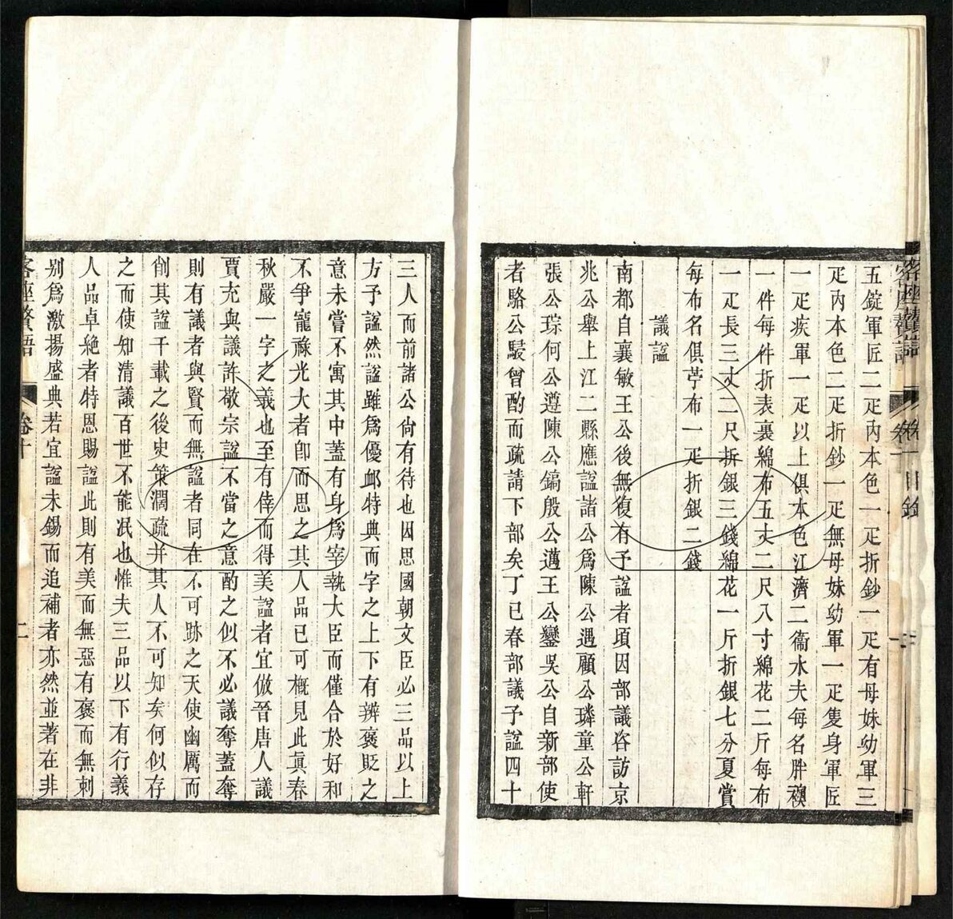 五錠軍匠二疋内本色一疋折鈔一疋有母妹幼軍三
疋内本色二疋折鈔一疋無母妹幼軍一疋隻身軍匠
一疋疾軍一疋以上俱本色江濟二衛水夫每名胖襖
一件每件折表裏綿布五丈二尺八寸綿花二斤每布
一疋長三丈二尺折銀三錢綿花一斤折銀七分夏賞
每布名俱苧布一疋折銀二錢
議諡
南都自襄敏王公後無復有予諡者項因部議咨訪京
兆公舉上江二縣應諡諸公為陳公遇顧公璘童公軒
張公琮何公遵陳公鎬殷公邁王公鑾吳公自新部使
者駱公駸曾酌而疏請下部矣丁巳春部議予諡四十
三人而前諸公尙有待也因思國朝文臣必三品以上
方予諡然諡雖為優䘏特典而字之上下有辨褒貶之
意未嘗不寓其中蓋有身為宰執大臣而僅合於好和
不爭寵祿光大者卽而思之其人品已可槪見此眞春
秋嚴一字之義也至有倖而得美諡者宜倣晉唐人議
賈充與議許敬宗諡不當之意酌之似不必議奪蓋奪
則有議者與賢而無諡者同在不可跡之天使幽厲而
削其諡千載之後史策濶疏并其人不可知矣何似存
之而使知清議百世不能泯也惟夫三品以下有行義
人品卓絶者特恩賜諡此則有美而無惡有褒而無刺
别為激揚盛典若宜諡未錫而追補者亦然並著在非
客座贅語
卷十
二